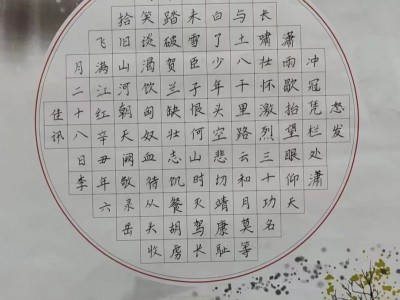 怒发
冲冠凭栏处潇
潇雨歇抬望眼仰天
长啸壮怀激烈三十功名
与土八千里路云和月莫等
白了少年头空悲切靖康耻
未雪臣子恨何山时灭驾长
踏破贺兰缺壮志饥餐胡虏
笑谈渴饮匈奴血待从头收
拾旧山河朝天阙敬录岳
飞满江红辛丑年六
月二十八日李
佳讯